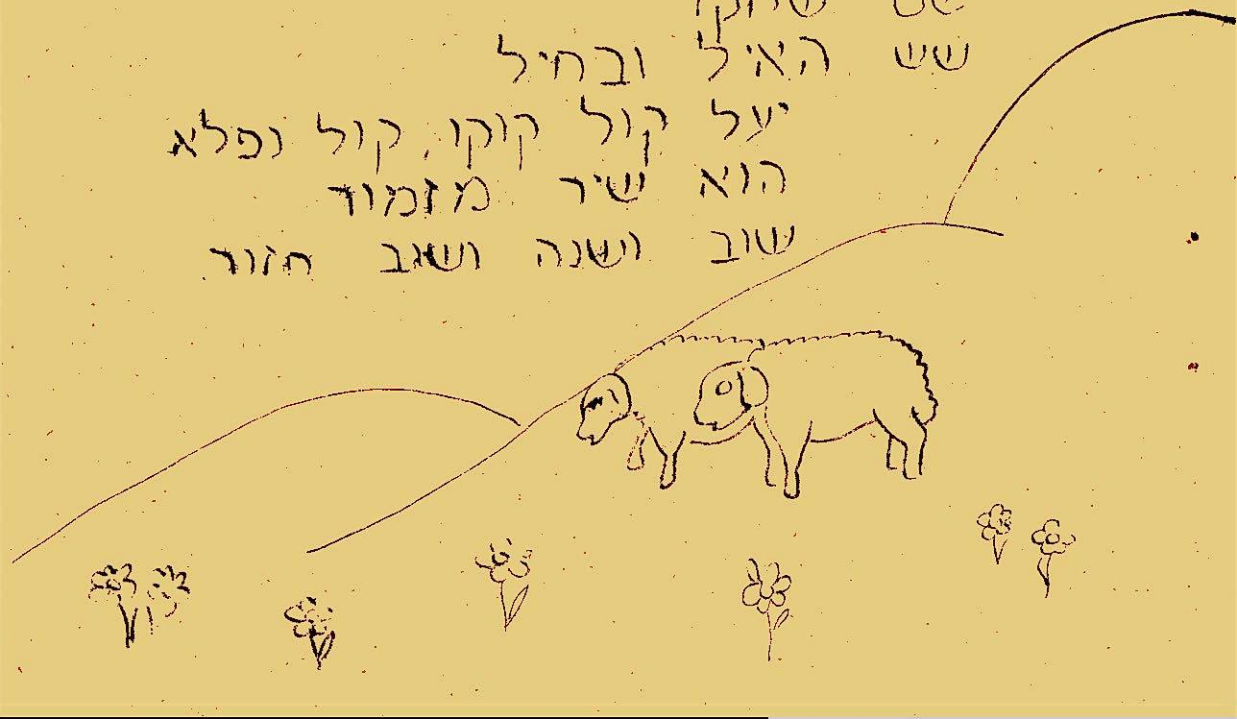 שש האיל ובחיל
יעל קול קוקו, קול ופלא
הוא שיר מזמור
שוב ושנה ושוב חזור